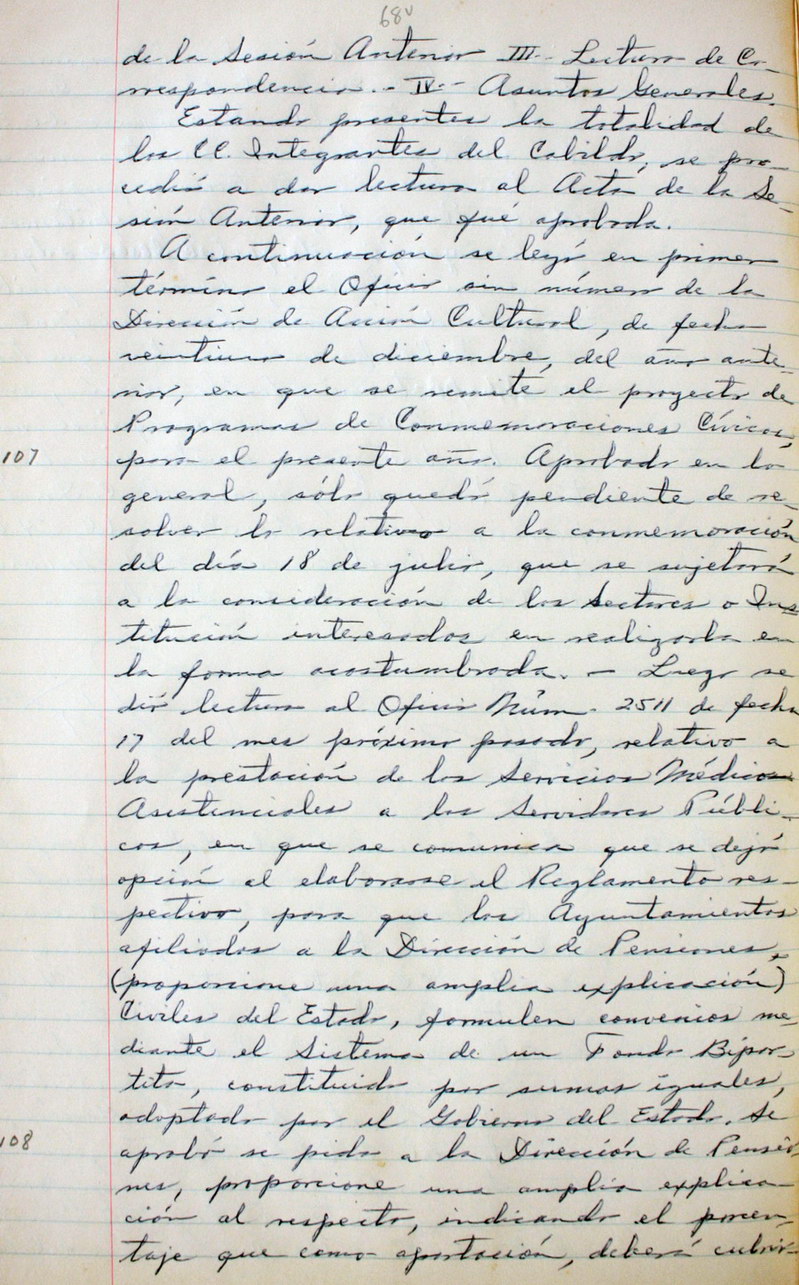 68v
de la Sesión Anterior III.- Lectura de Co-
rrespondencia.- IV.- Asuntos Generales.
Estando presentes la totalidad de
los CC. Integrantes del Cabildo, se pro-
cedió a dar lectura al Acta de la Se-
sión Anterior, que fué aprobada.
A continuación se leyó en primer
término el Oficio sin número de la
Dirección de Acción Cultural, de fecha
veintiuno de diciembre, del año ante-
rior, en que se remite el proyecto de
Programas de Conmemoraciones Cívicas,
107 para el presente año. Aprobado en lo
general, sólo quedó pendiente de re-
solver lo relativo a la conmemoración
del día 18 de julio, que se sujetará
a la consideración de los Sectores o Ins
titución interesados en realizarla en
la forma acostumbrada. - Luego se
dió lectura al Oficio Núm. 2511 de fecha
17 del mes próximo pasado, relativo a
la prestación de los Servicios Médicos
Asistenciales a los Servidores Públi-
cos, en que se comunica que se dejó
opción al elaborarse el Reglamento res-
pectivo, para que los Ayuntamientos
afiliados a la Dirección de Pensiones,
(proporcione una amplia explicación)
Civiles del Estado, formulen convenios me-
diante el Sistema de un Fondo Bipar-
tito, constituido por sumas iguales,
adoptado por el Gobierno del Estado. Se
108 aprobó se pida a la Dirección de Pensio-
nes, proporcione una amplia explica-
ción al respecto, indicando el porcen-
taje que como aportación, deberá cubrir